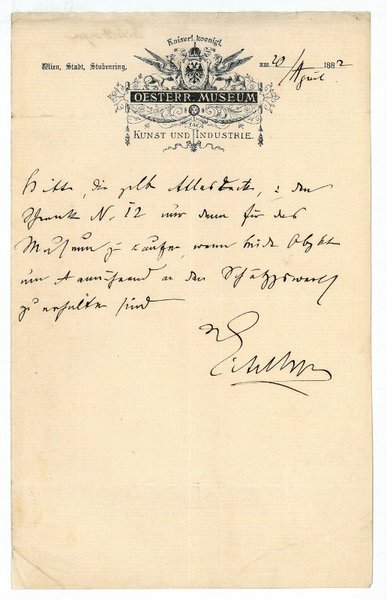 Kaiserl. koenigl.
Wien, Stadt, Stubenring, am 20/April 1882
OESTERR. MUSEUM
FÜR
KUNST UND INDUSTRIE.
Bitte, die gelbe Atlasdecke, & den
Schrank N. 12 nur dann für das
Museum zu kaufen, wenn beide Objekte
um annähernd den Schätzungswerth
zu erhalten sind
Eitelberger